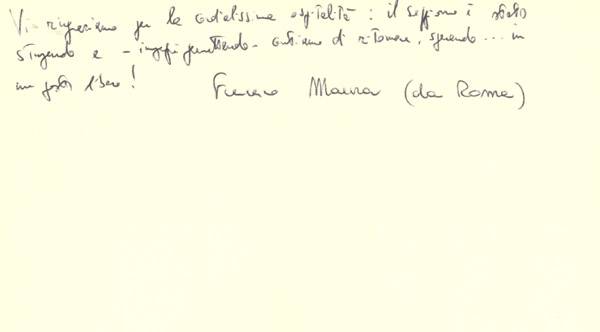 Vi ringraziamo per la cordialissima ospitalità: il soggiorno è stato
stupendo e - impegni permettendo - contiamo di ritornare, sperando... in
un posto libero!
Maura (da Roma)